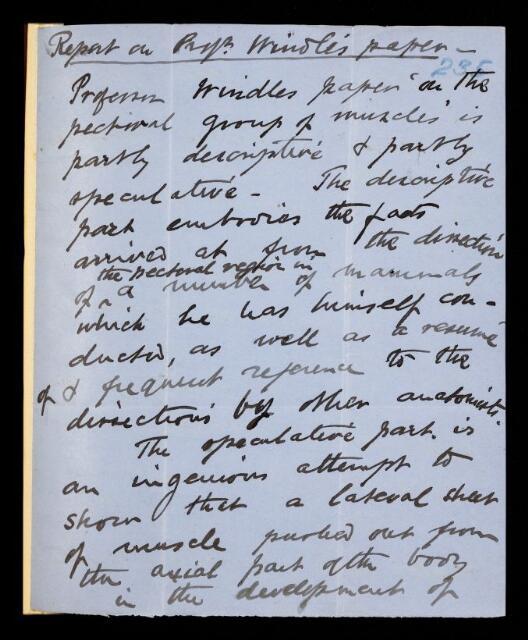 Report on Profr. Windle's paper -
235
Professor Windles paper "on the
pectoral group of muscles" is
partly descriptive & partly
speculative - The descriptive
part embodies the facts
arrived at from the dissection
the pectoral region in
of a number of mammals
which he has himself con-
ducted, as well as a resumé
of & frequent reference to the
dissections by other anatomists.
The speculative part is
an ingenious attempt to
show that a lateral sheet
of muscle pushed out from
the axial part of the body
in the development of